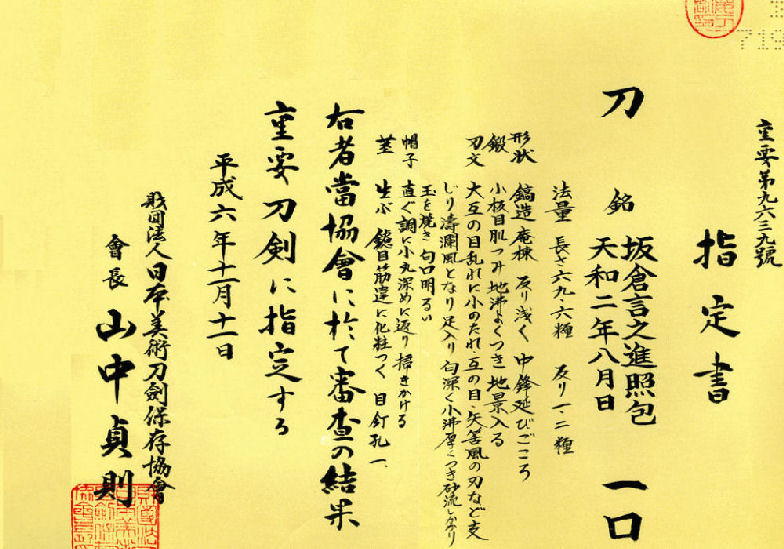 重要第九六三九號
指定書
刀 銘 坂倉言之進照包 一口
天和二年八月日
法量 長さ六九・六糎 反り一・二糎
形状 鎬造 庵棟 反り浅く 中鋒延びごころ
鍛 小板目肌つみ 地沸よくつき 地景入る
刃文 大互の目乱れに小のたれ・互の目・矢筈風の刃など交
じり 濤瀾風となり 足入り 匂深く 小沸厚くつき 砂流しかかり
玉を焼き 匂口明るい
帽子 直ぐ調に小丸深めに返り 掃きかける
茎 生ぶ 鑢目筋違に化粧つく 目釘孔一
右者當協會に於て審査の結果
重要刀剣に指定する
平成六年十一月十一日
財団法人日本美術刀劍保存協會
會長 山中貞則
719